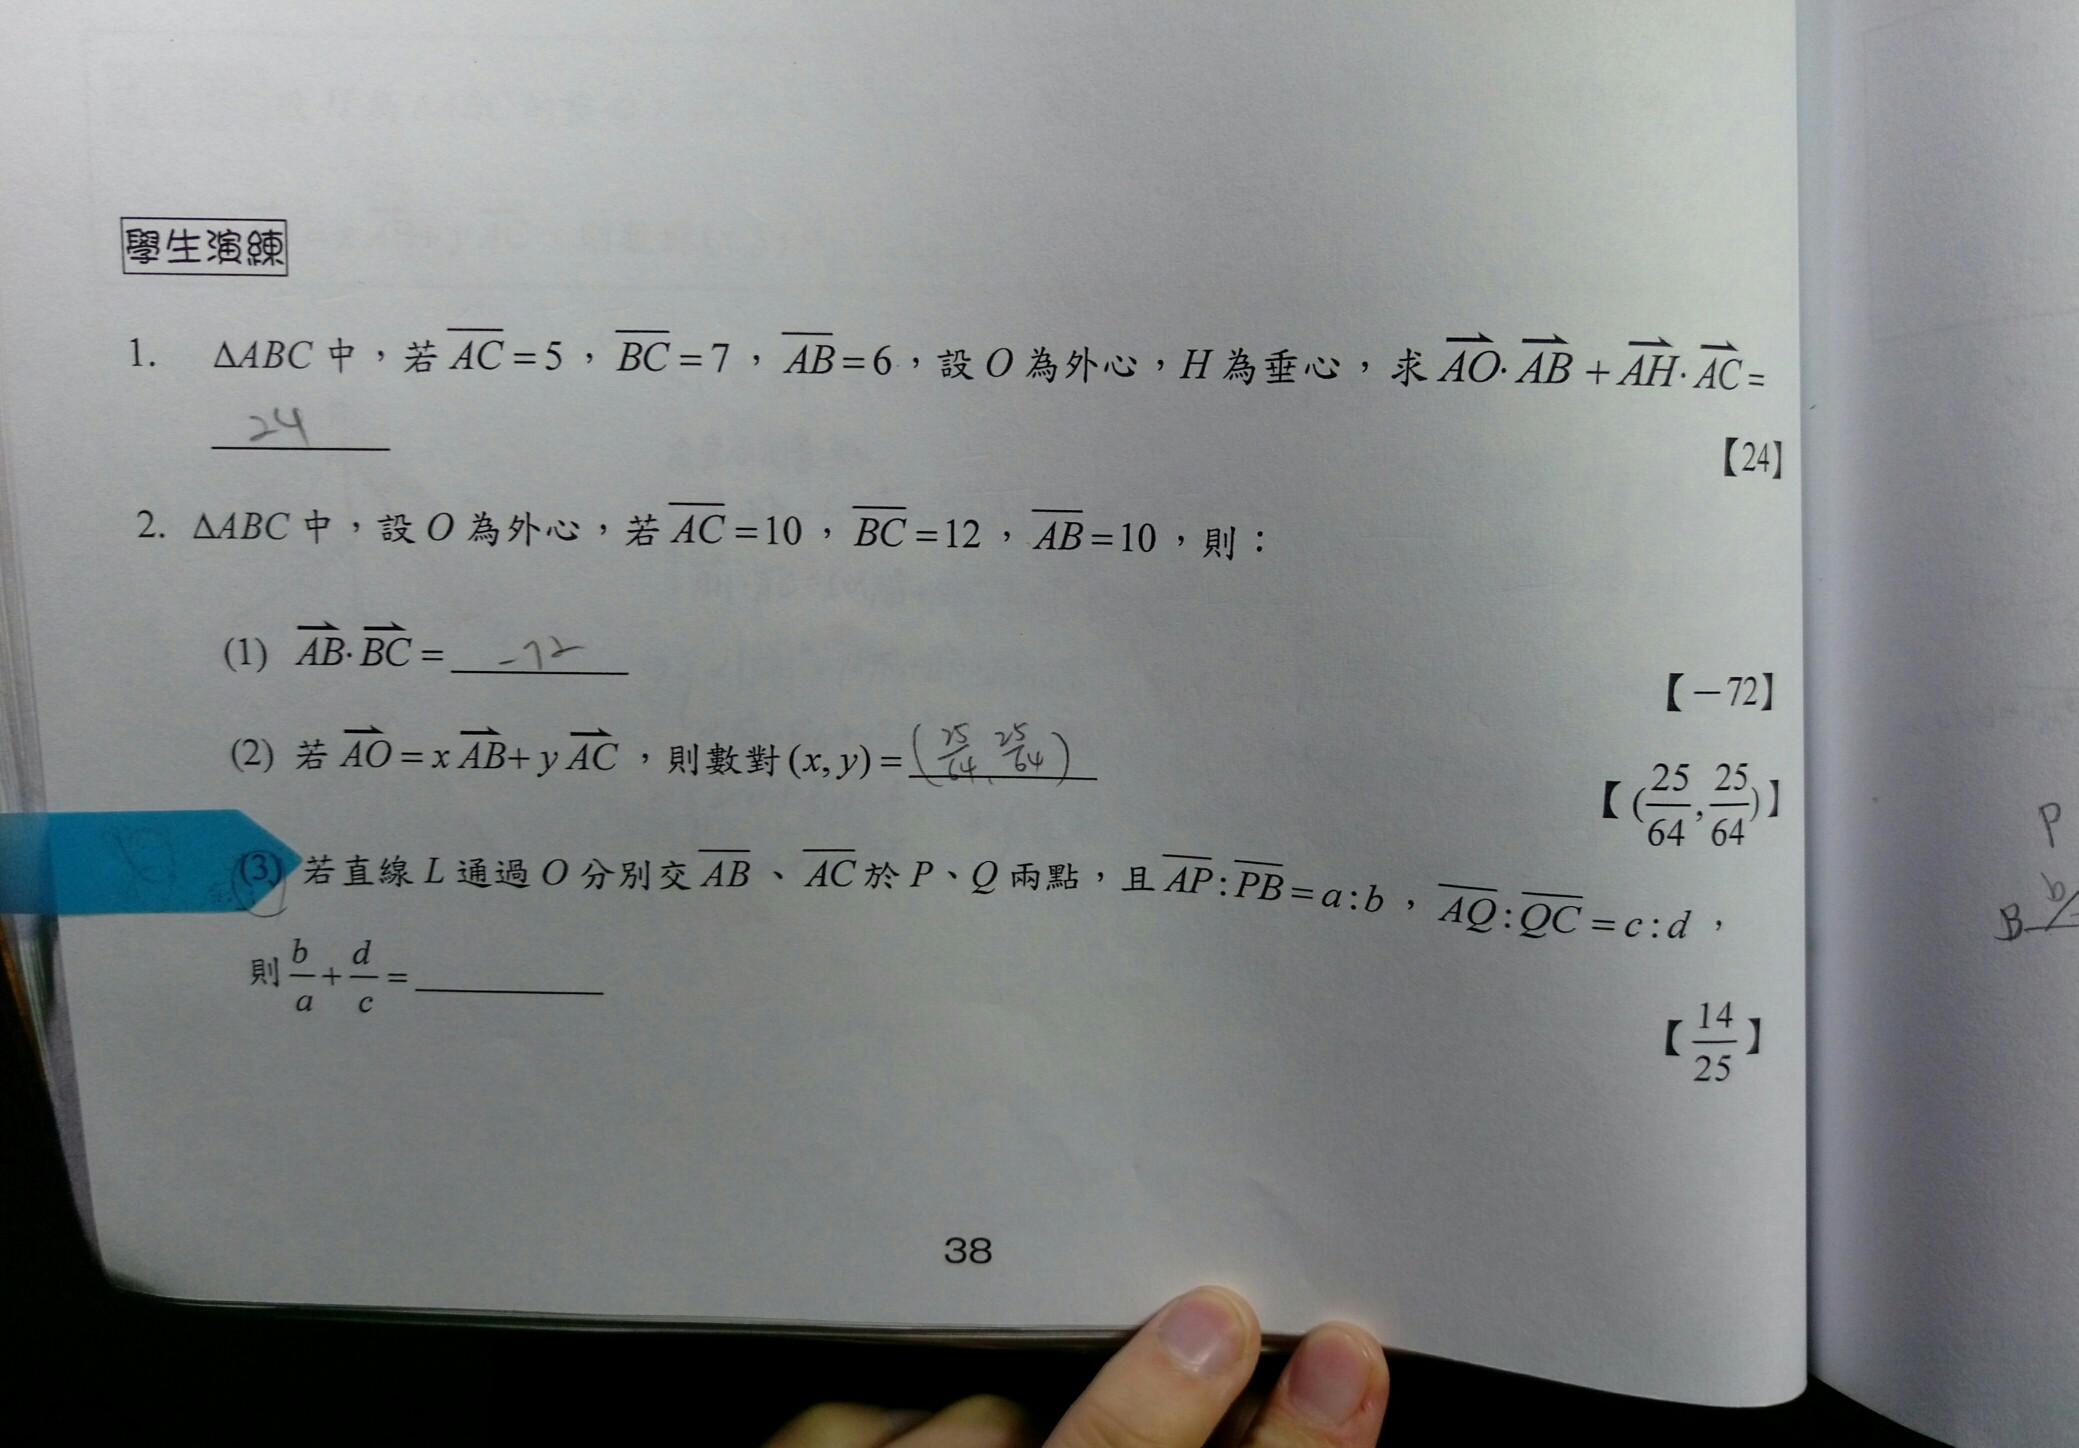 學生演練
1. ΔABC 中，若 \overline{AC}=5，\overline{BC}=7，\overline{AB}=6，設 O 為外心，H 為垂心，求 \overrightarrow{AO}·\overrightarrow{AB}+\overrightarrow{AH}·\overrightarrow{AC}=
24
【24】
2. ΔABC 中，設 O 為外心，若 \overline{AC}=10，\overline{BC}=12，\overline{AB}=10，則：
(1) \overrightarrow{AB}·\overrightarrow{BC}= -72
【-72】
(2) 若 \overrightarrow{AO}=x\overrightarrow{AB}+y\overrightarrow{AC}，則數對(x, y)= (25/64, 25/64)
【(25/64, 25/64)】
(3) 若直線 L 通過 O 分別交 \overline{AB}、\overline{AC} 於 P、Q 兩點，且 \overline{AP}:\overline{PB}=a:b，\overline{AQ}:\overline{QC}=c:d，
則 b/a + d/c = ______
【14/25】
38
P
b
B